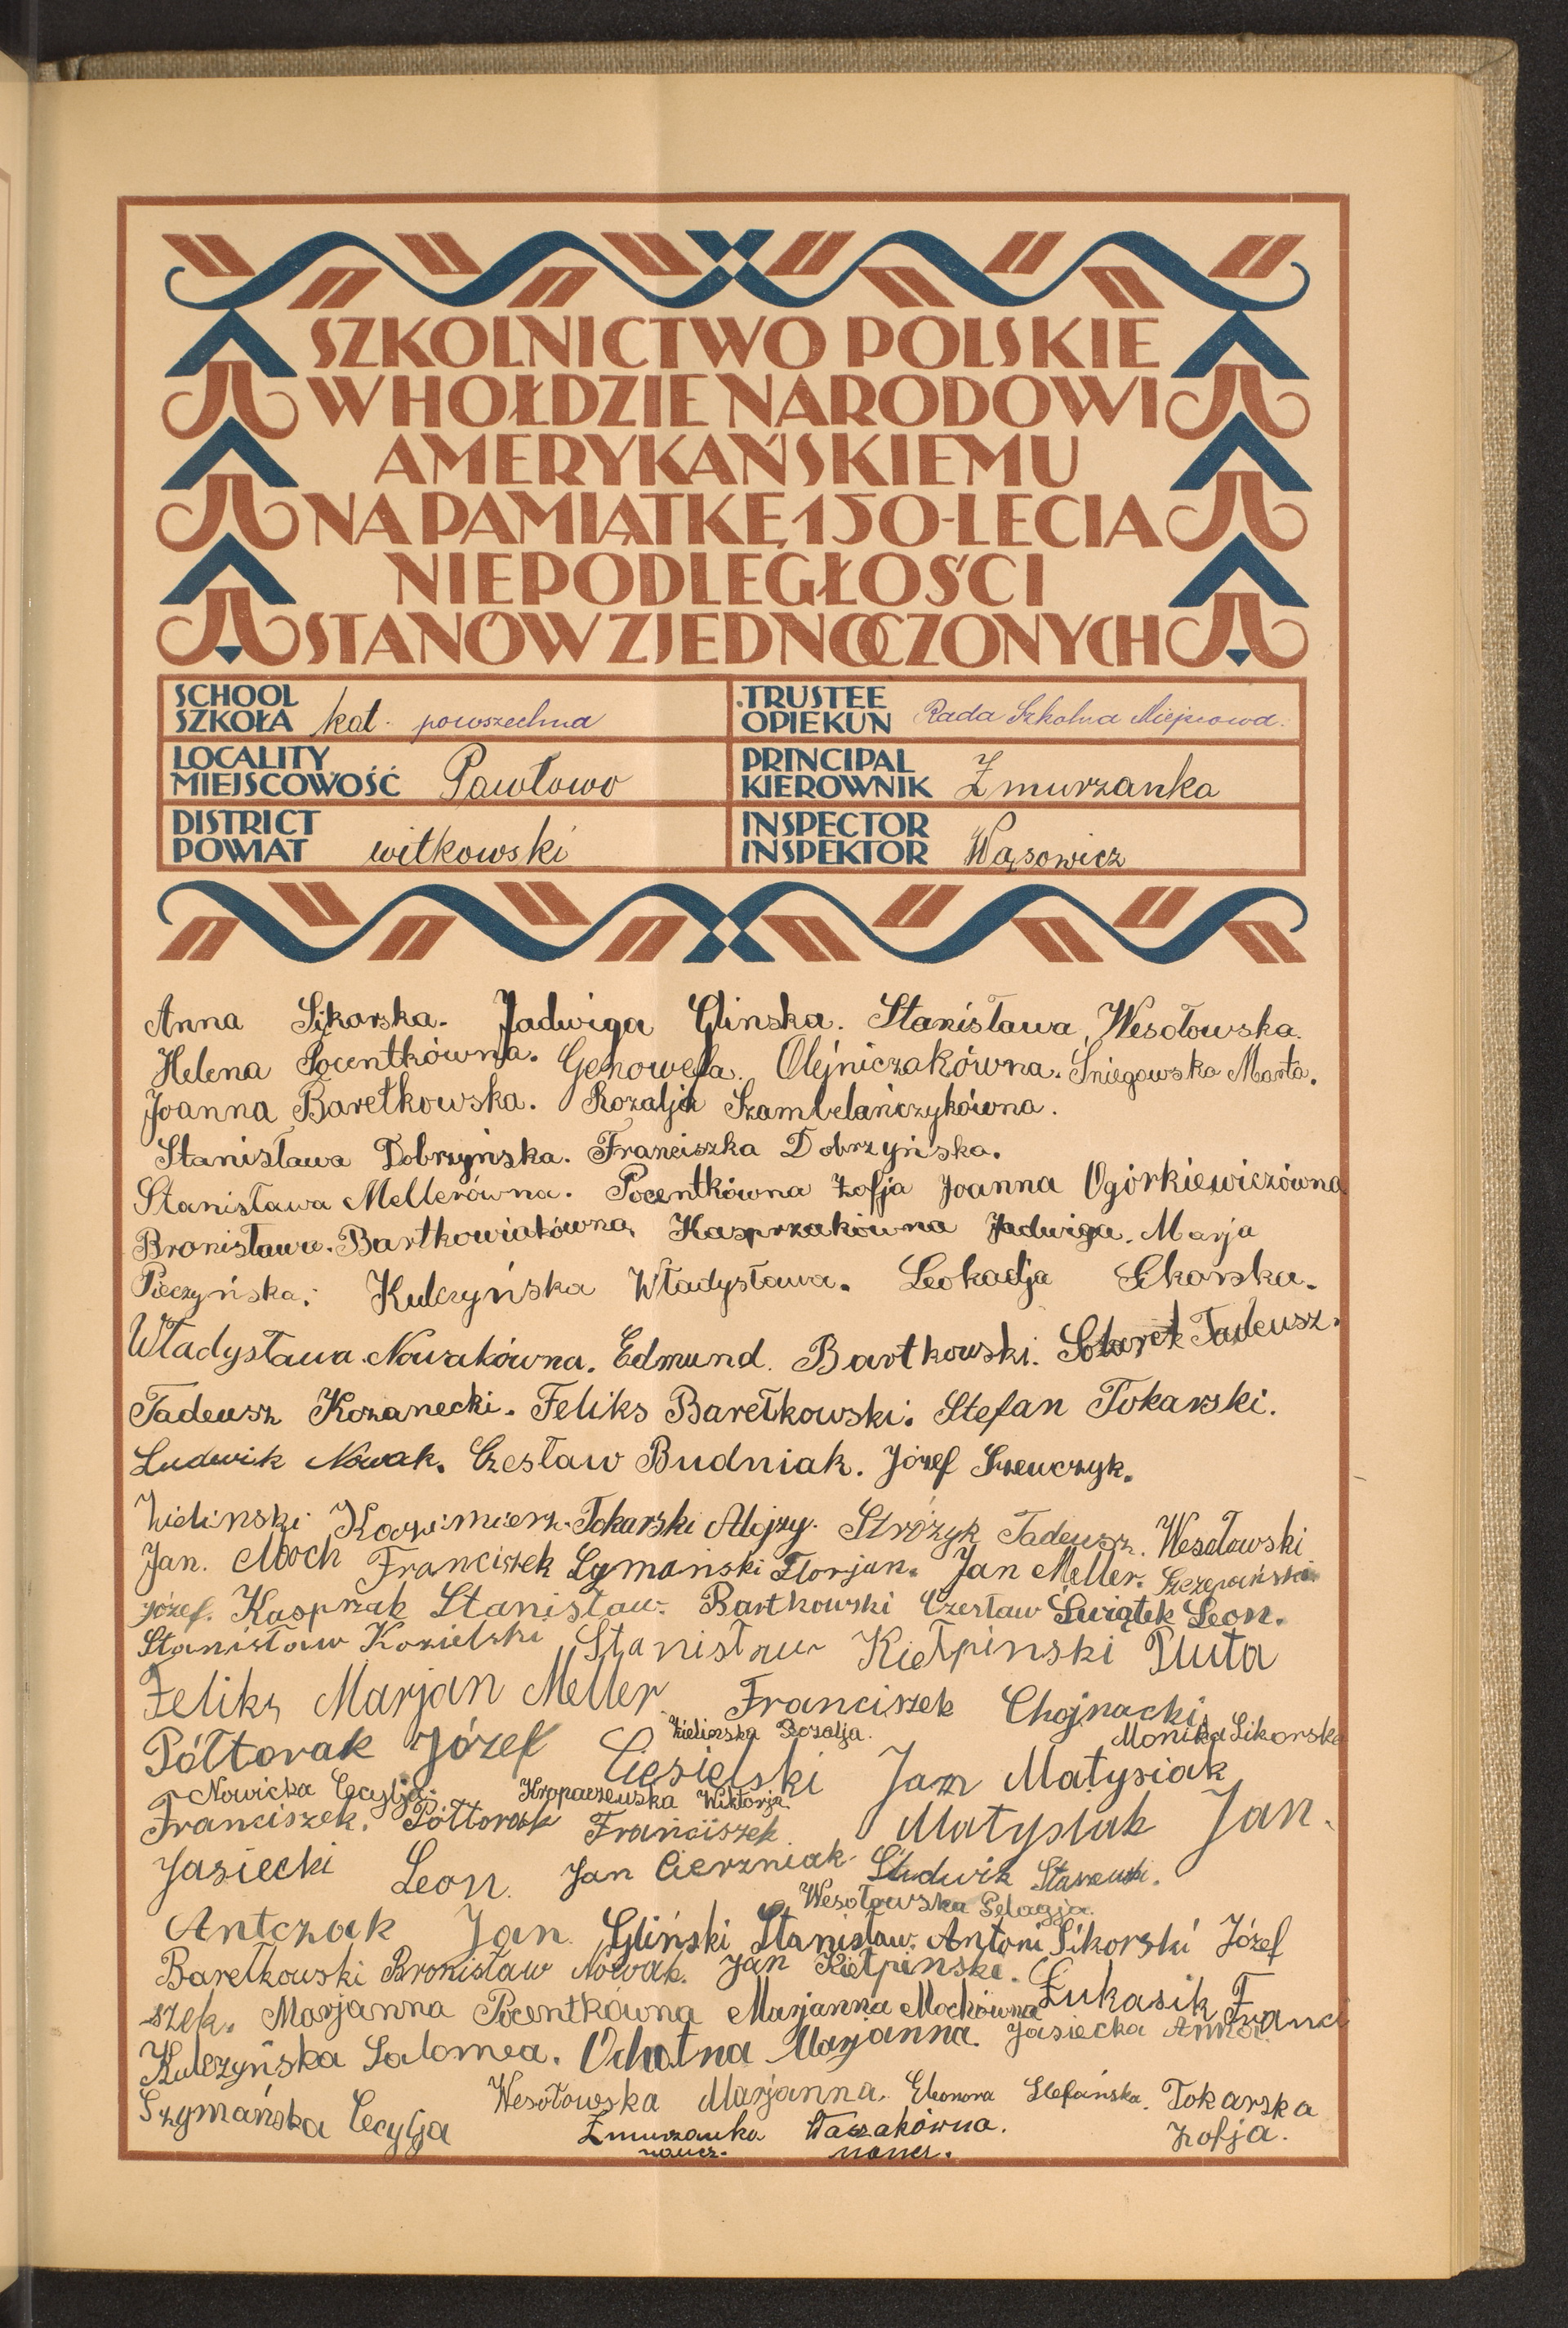 SZKOLNICTWO POLSKIE
W HOŁDZIE NARODOWI
AMERYKAŃSKIEMU
NA PAMIĄTKĘ 150-LECIA
NIEPODLEGŁOŚCI
STANÓW ZJEDNOCZONYCH
SCHOOL
SZKOŁA kat. powszechna
TRUSTEE
OPIEKUN Rada Szkolna Miejscowa.
LOCALITY
MIEJSCOWOŚĆ Pawłowo
PRINCIPAL
KIEROWNIK Żmurzanka
DISTRICT
POWIAT witkowski
INSPECTOR
INSPEKTOR Wąsowicz
Anna Sikorska. Jadwiga Glinska. Stanisława Wesołowska.
Helena Pocentkówna. Genowefa Olejniczakówna. Śniegowska Marta.
Joanna Barełkowska. Rozalja Szambelańczykówna.
Stanisława Dobrzyńska. Franciszka Dobrzyńska.
Stanisława Mellerówna. Pocentkówna Zofja Joanna Ogórkiewiczówna
Bronisława. Bartkowiakówna, Kasprzakówna Jadwiga. Marja
Pieczyńska. Kulczyńska Władysława. Leokadja Sikorska.
Władysława Nowakówna. Edmund Bartkowski. Tadeusz.
Tadeusz Kozanecki. Feliks Barełkowski. Stefan Tokarski.
Ludwik Nowak. Czesław Budniak. Józef Szewczyk.
Zielinski Kazimierz. Tokarski Alojzy. Stróżyk Tadeusz. Wesołowski
Jan. Moch Franciszek Szymański Florjan. Jan Meller. Szczepański
Józef. Kasprzak Stanisław. Bartkowski Czesław Świątek Leon.
Stanisław Kozielski Stanisław Kiełpinski Pluta
Feliks Marjan Meller Franciszek Chojnacki
Zielinska Rozalja. Monika Sikorska
Półtorak Józef Ciesielski Jan Matysiak
Nowicka Cecylja. Kropaczewska Wiktorja
Franciszek. Półtorak Franciszek. Matysiak Jan.
Jasiecki Leon. Jan Cierzniak Ludwik Staszewski.
Wesołowska Pelagja.
Antczak Jan Gliński Stanisław. Antoni Sikorski Józef
Barełkowski Bronisław Nowak. Jan Kiełpinski. Łukasik Franci
szek. Marjanna Pocentkówna Marjanna Mochówna
Kulczyńska Salomea. Ochotna Marjanna. Jasiecka Anna.
Szymańska Cecylja Wesołowska Marjanna. Eleonora Stefańska. Tokarska
Zofja.
Żmurzanka Waszakówna.
naucz. naucz.